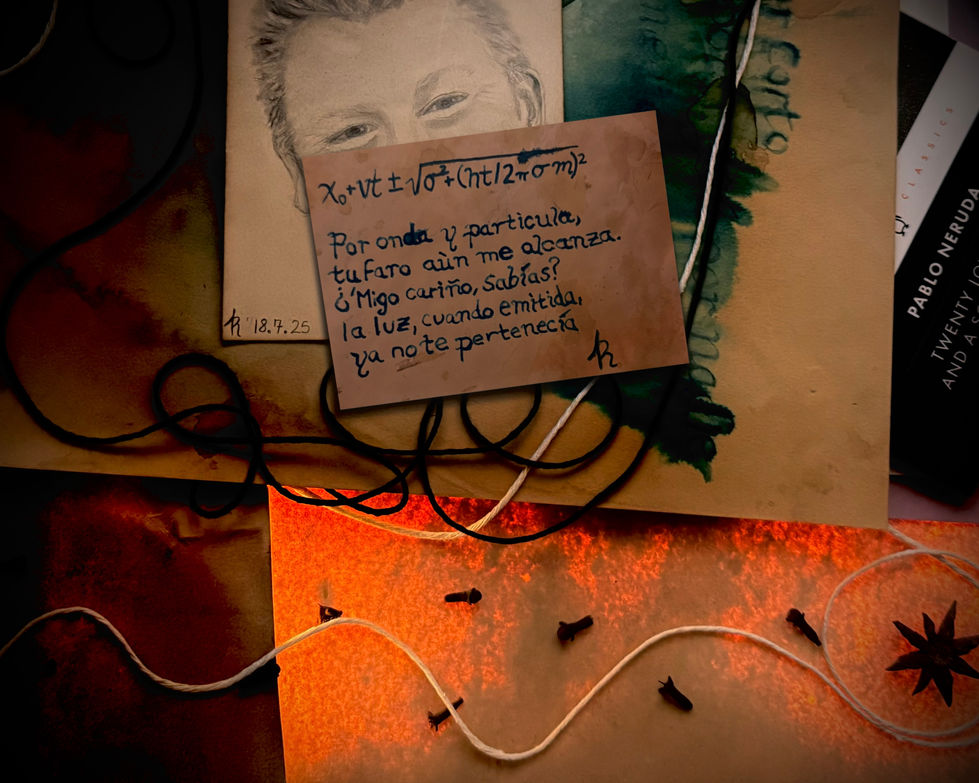 x₀+vt ± √σ²+(ht/2πσm)²
Por onda y particula,
tu faro aùn me alcanza.
¿'Migo cariño, sabías?
la luz, cuando emitida,
ya no te pertenecía
R
R '18.7.25
CLASSICS
PABLO NERUDA
TWENTY LO
AND A S